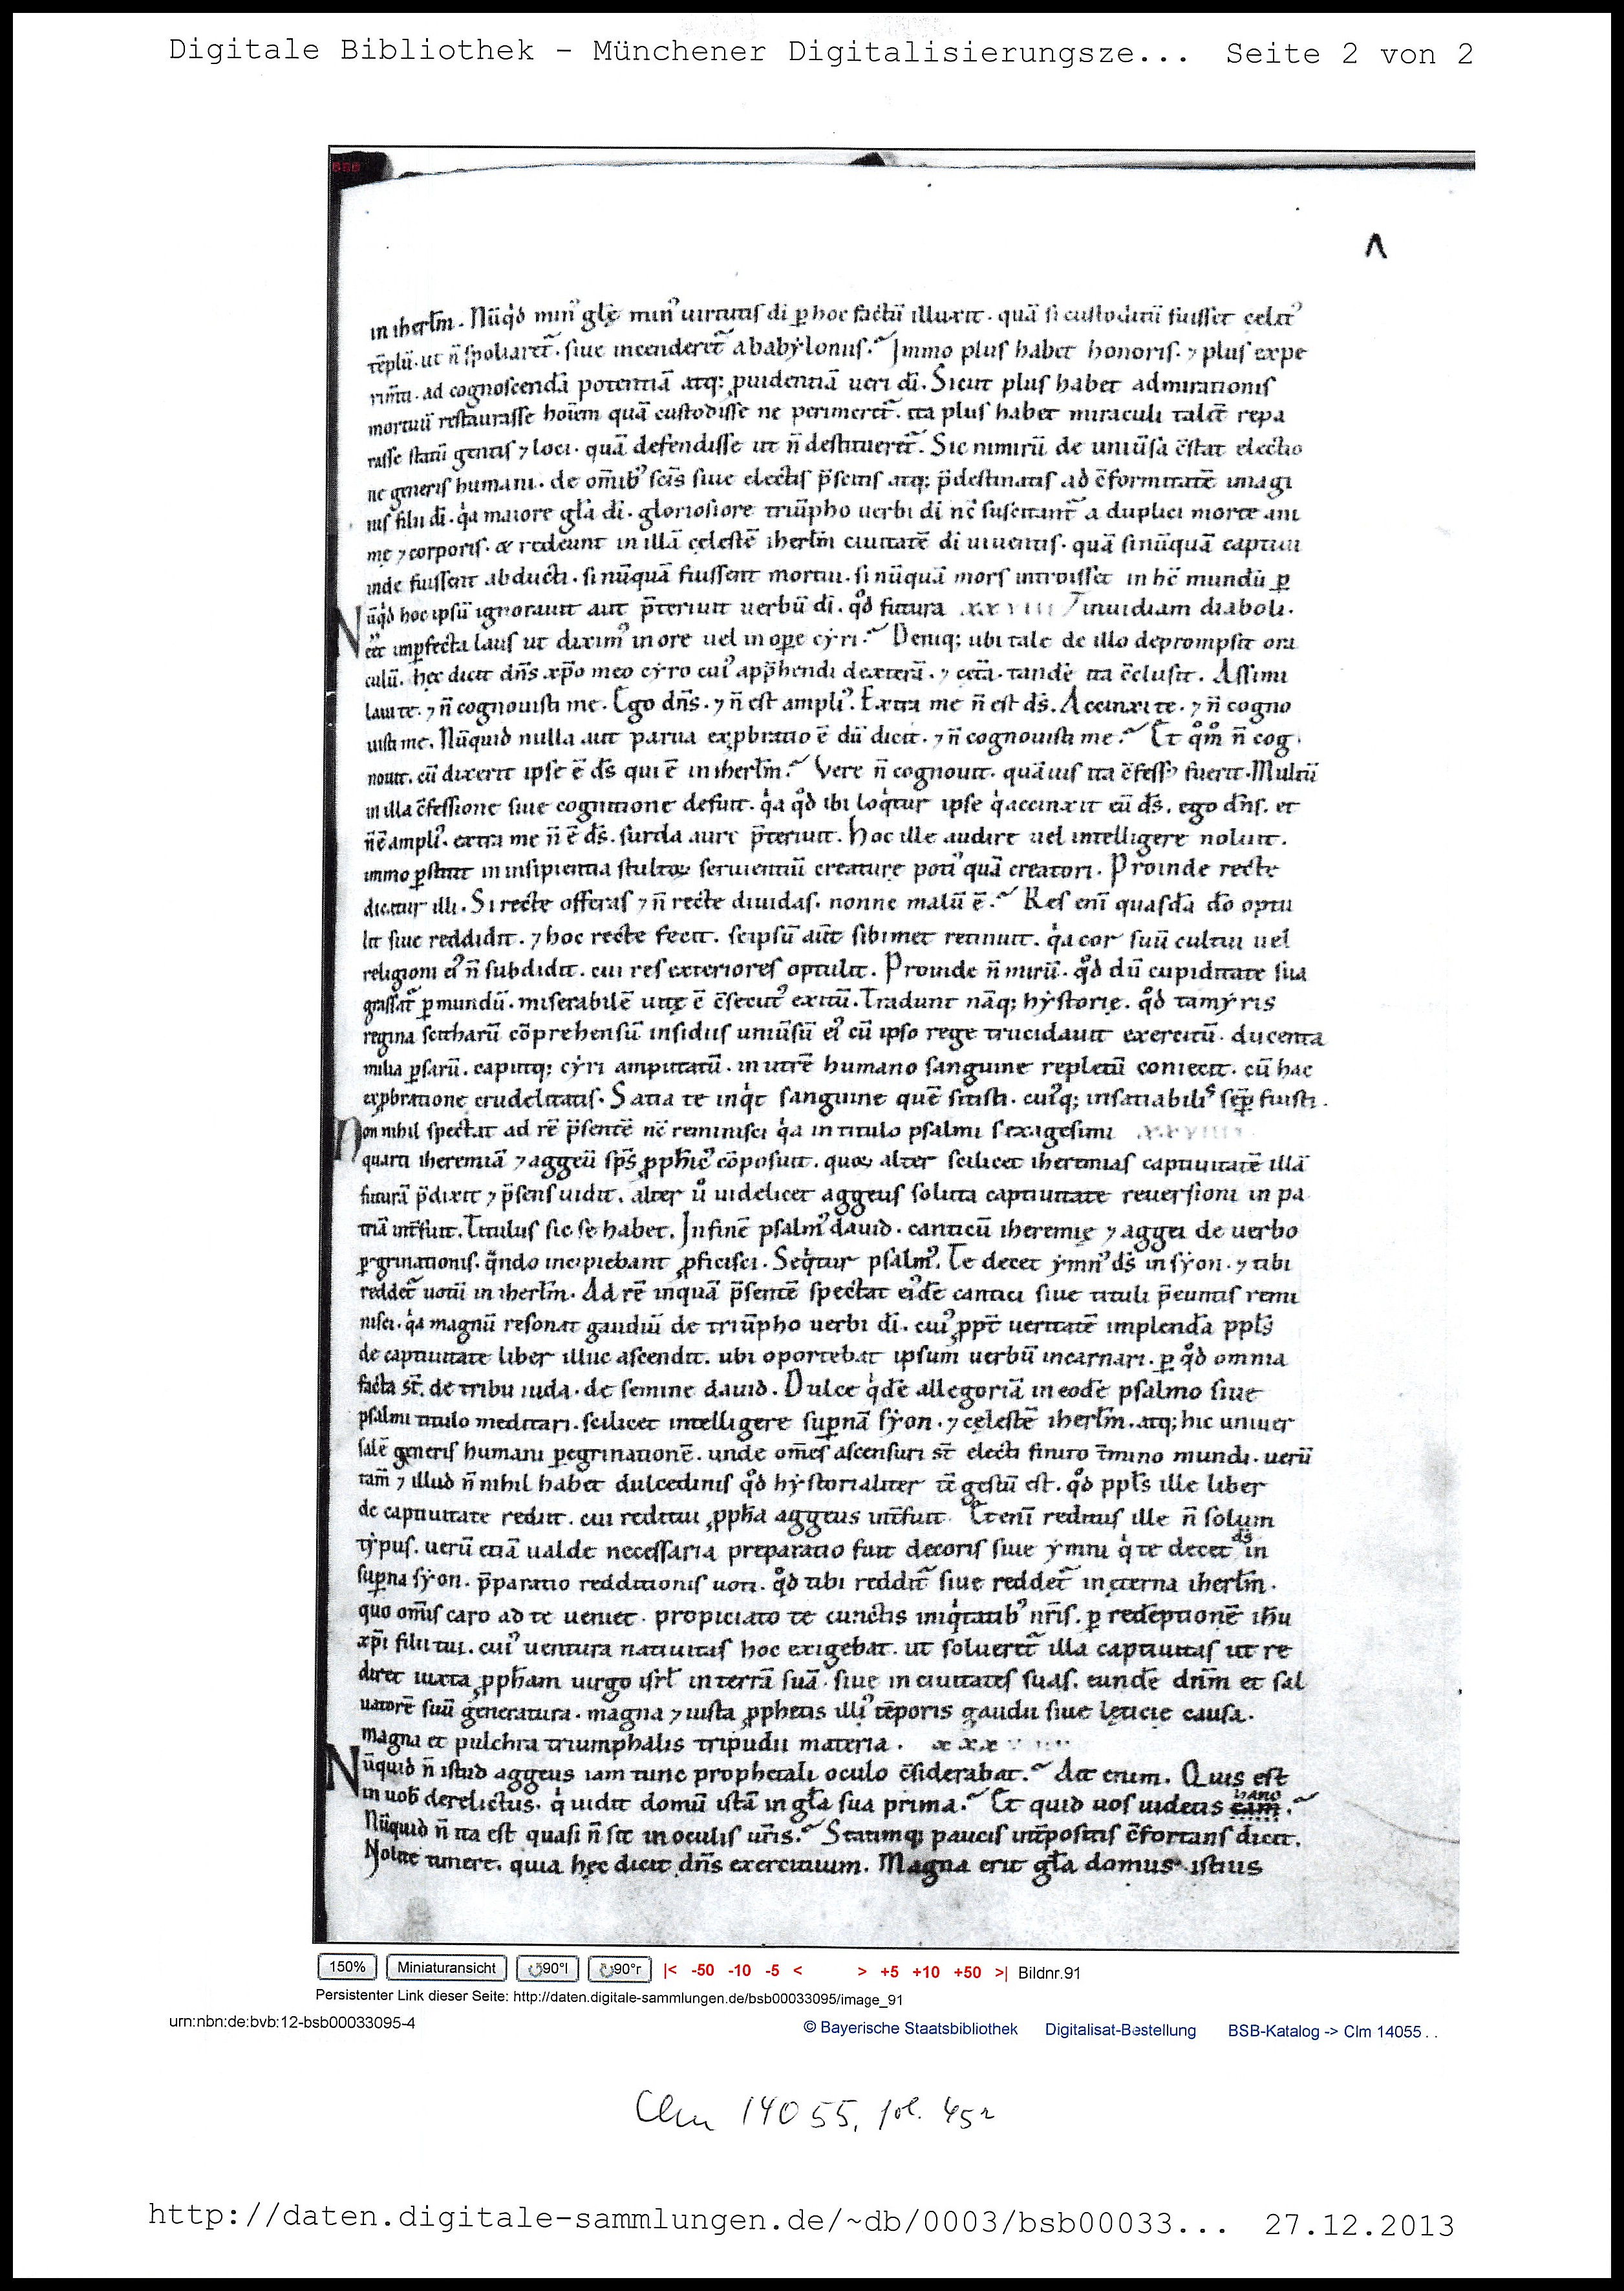 Digitale Bibliothek - Münchener Digitalisierungsze... Seite 2 von 2
BSB
Λ
in iherl̄m. Nūq͛d minꝰ glę minꝰ uirtutis di ꝑ hoc factū illuxit. quā si custoditū fuisset celatꝰ
tēplū. ut n̄ spoliaret᷑. siue incenderet᷑ a babylonus. Immo plus habet honoris. ⁊ plus expe
rim̄ti. ad cognoscendā potentiā atq; ꝓuidentiā ueri dī. Sicut plus habet admirationis
mortuū restaurasse hoīem quā custodisse ne perimeret᷑. ita plus habet miraculi talit̄ repa
rasse statū gentis ⁊ loci. quā defendisse ut n̄ destitueret᷑. Sic nimirū de uniūsa c̄stat electio
ne generis humani. de om̄ibꝰ sc̄is siue electis p̄scitis atq; p̄destinatis ad c̄formitatē imagi
nis filii dī. q͛a maiore gl̄a dī. gloriosiore triūpho uerbi dī nc̄ suscitant᷑ a duplici morte ani
mę ⁊ corporis. & redeunt in illā cęlestē iherl̄m ciuitatē dī uiuentis. quā si nūquā captiui
inde fuissent abducti. si nūquā fuissent mortui. si nūquā mors introisset in hc̄ mundū ꝑ
Nūq͛d hoc ipsū ignorauit aut p̄teriuit uerbū dī. qd̊ futura xxviii inuidiam diaboli.
eēt imꝑfecta laus ut diximꝰ in ore uel in oꝑe cyri. Deniq; ubi tale de illo deprompsit ora
culū. hęc dicit dn̄s xp̄o meo cyro cuiꝰ app̄hendi dexterā. ⁊ cet̄a. tandē ita c̄clusit. Assimi
laui te. ⁊ n̄ cognouisti me. Ego dn̄s. ⁊ n̄ est ampliꝰ. Extra me n̄ est ds̄. Accinxi te. ⁊ n̄ cogno
uisti me. Nūquid nulla aut parua exꝓbratio ē dū dicit. ⁊ n̄ cognouisti me. Et qm̊ n̄ cog
nouit. cū dixerit ipse ē ds̄ qui ē in iherl̄m. Vere n̄ cognouit. quāuis ita c̄fessꝰ fuerit. Multū
in illa c̄fessione siue cognitione defuit. q͛a qd̊ ibi loq͛tur ipse q͛ accinxit eū ds̄. ego dn̄s. et
n̄ ē ampliꝰ. extra me n̄ ē ds̄. surda aure p̄teriuit. Hoc ille audire uel intelligere noluit.
immo ꝑstitit in insipientia stultoꝝ seruientiū creaturę potiꝰ quā creatori. Proinde recte
dicitur illi. Si recte offeras ⁊ n̄ recte diuidas. nonne malū ē. Res enī quasdā dō optu
lit siue reddidit. ⁊ hoc recte fecit. seipsū aūt sibimet retinuit. q͛a cor suū cultui uel
religioni eiꝰ n̄ subdidit. cui res exteriores optulit. Proinde n̄ mirū. qd̊ dū cupiditate sua
grassat᷑ ꝑ mundū. miserabilē uitę ē c̄secutꝰ exitū. Tradunt nāq; hystorię. qd̊ tamyris
regina scitharū cōprehensū insidiis uniūsū eiꝰ cū ipso rege trucidauit exercitū. ducenta
milia ꝑsarū. caputq; cyri amputatū. in utrē humano sanguine repletū coniecit. cū hac
exꝓbratione crudelitatis. Satia te inq͛t sanguine quē sitisti. cuiꝰq; insatiabilis sēꝑ fuisti.
Non nihil spectat ad rē p̄sentē nc̄ reminisci q͛a in titulo psalmi sexagesimi xxviiii
quarti iheremiā ⁊ aggeū sp̄s ꝓph̄icꝰ cōposuit. quoꝝ alter scilicet iheremias captiuitatē illā
futurā p̄dixit ⁊ p̄sens uidit. alter u̇ uidelicet aggeus soluta captiuitate reuersioni in pa
triā int̄fuit. Titulus sic se habet. In finē psalmꝰ dauid. canticū iheremię ⁊ aggei de uerbo
ꝑegrinationis. qn̄do incipiebant ꝓficisci. Seq͛tur psalmꝰ. Te decet ymnꝰ ds̄ in syon. ⁊ tibi
reddet᷑ uotū in iherl̄m. Ad rē inquā p̄sentē spectat eiꝰdē cantici siue tituli p̄euntis remi
nisci. q͛a magnū resonat gaudiū de triūpho uerbi dī. cuiꝰ ꝓpt̄ ueritatē implendā ppl̄s
de captiuitate liber illuc ascendit. ubi oportebat ipsum uerbū incarnari. ꝑ qd̊ omnia
facta st̄. de tribu iuda. de semine dauid. Dulce q͛dē allegoriā in eodē psalmo siue
psalmi titulo meditari. scilicet intelligere suꝑnā syon. ⁊ cęlestē iherl̄m. atq; hic uniuer
salē generis humani ꝑegrinationē. unde om̄es ascensuri st̄ electi finito t̄mino mundi. uerū
tam̄ ⁊ illud n̄ nihil habet dulcedinis qd̊ hystorialiter tc̄ gestū est. qd̊ ppl̄s ille liber
de captiuitate rediit. cui reditui ꝓph̄a aggeus int̄fuit. Etenī reditus ille n̄ solum
typus. uerū etiā ualde necessaria preparatio fuit decoris siue ymni q͛ te decet ds̄ in
suꝑna syon. p̄paratio redditionis uoti. qd̊ tibi reddit᷑ siue reddet᷑ in ęterna iherl̄m.
quo om̄is caro ad te ueniet. propiciato te cunctis iniq͛tatibꝰ nr̄is. ꝑ redēptionē ih̄u
xp̄i filii tui. cuiꝰ uentura natiuitas hoc exigebat. ut solueret᷑ illa captiuitas ut re
diret iuxta ꝓph̄am uirgo isrl̄ in terrā suā. siue in ciuitates suas. eundē dn̄m et sal
uatorē suū generatura. magna ⁊ iusta ꝓphetis illiꝰ tēporis gaudii siue lęticię causa.
magna et pulchra triumphalis tripudii materia. xxx
Nūquid n̄ istud aggeus iam tunc prophetali oculo c̄siderabat. Ait enim. Quis est
in uob̄ derelictus. q͛ uidit domū istā in gl̄a sua prima. Et quid uos uidetis eam hanc.
Nūquid n̄ ita est quasi n̄ sit in oculis ur̄is. Statimq; paucis int̄positis c̄fortans dicit.
Nolite timere. quia hęc dicit dn̄s exercituum. Magna erit gl̄a domus istius
150% Miniaturansicht 90°l 90°r |< -50 -10 -5 < > +5 +10 +50 >| Bildnr.91
Persistenter Link dieser Seite: http://daten.digitale-sammlungen.de/bsb00033095/image_91
urn:nbn:de:bvb:12-bsb00033095-4
© Bayerische Staatsbibliothek Digitalisat-Bestellung BSB-Katalog -> Clm 14055 . .
Clm 14055, fol. 45r
http://daten.digitale-sammlungen.de/~db/0003/bsb00033... 27.12.2013